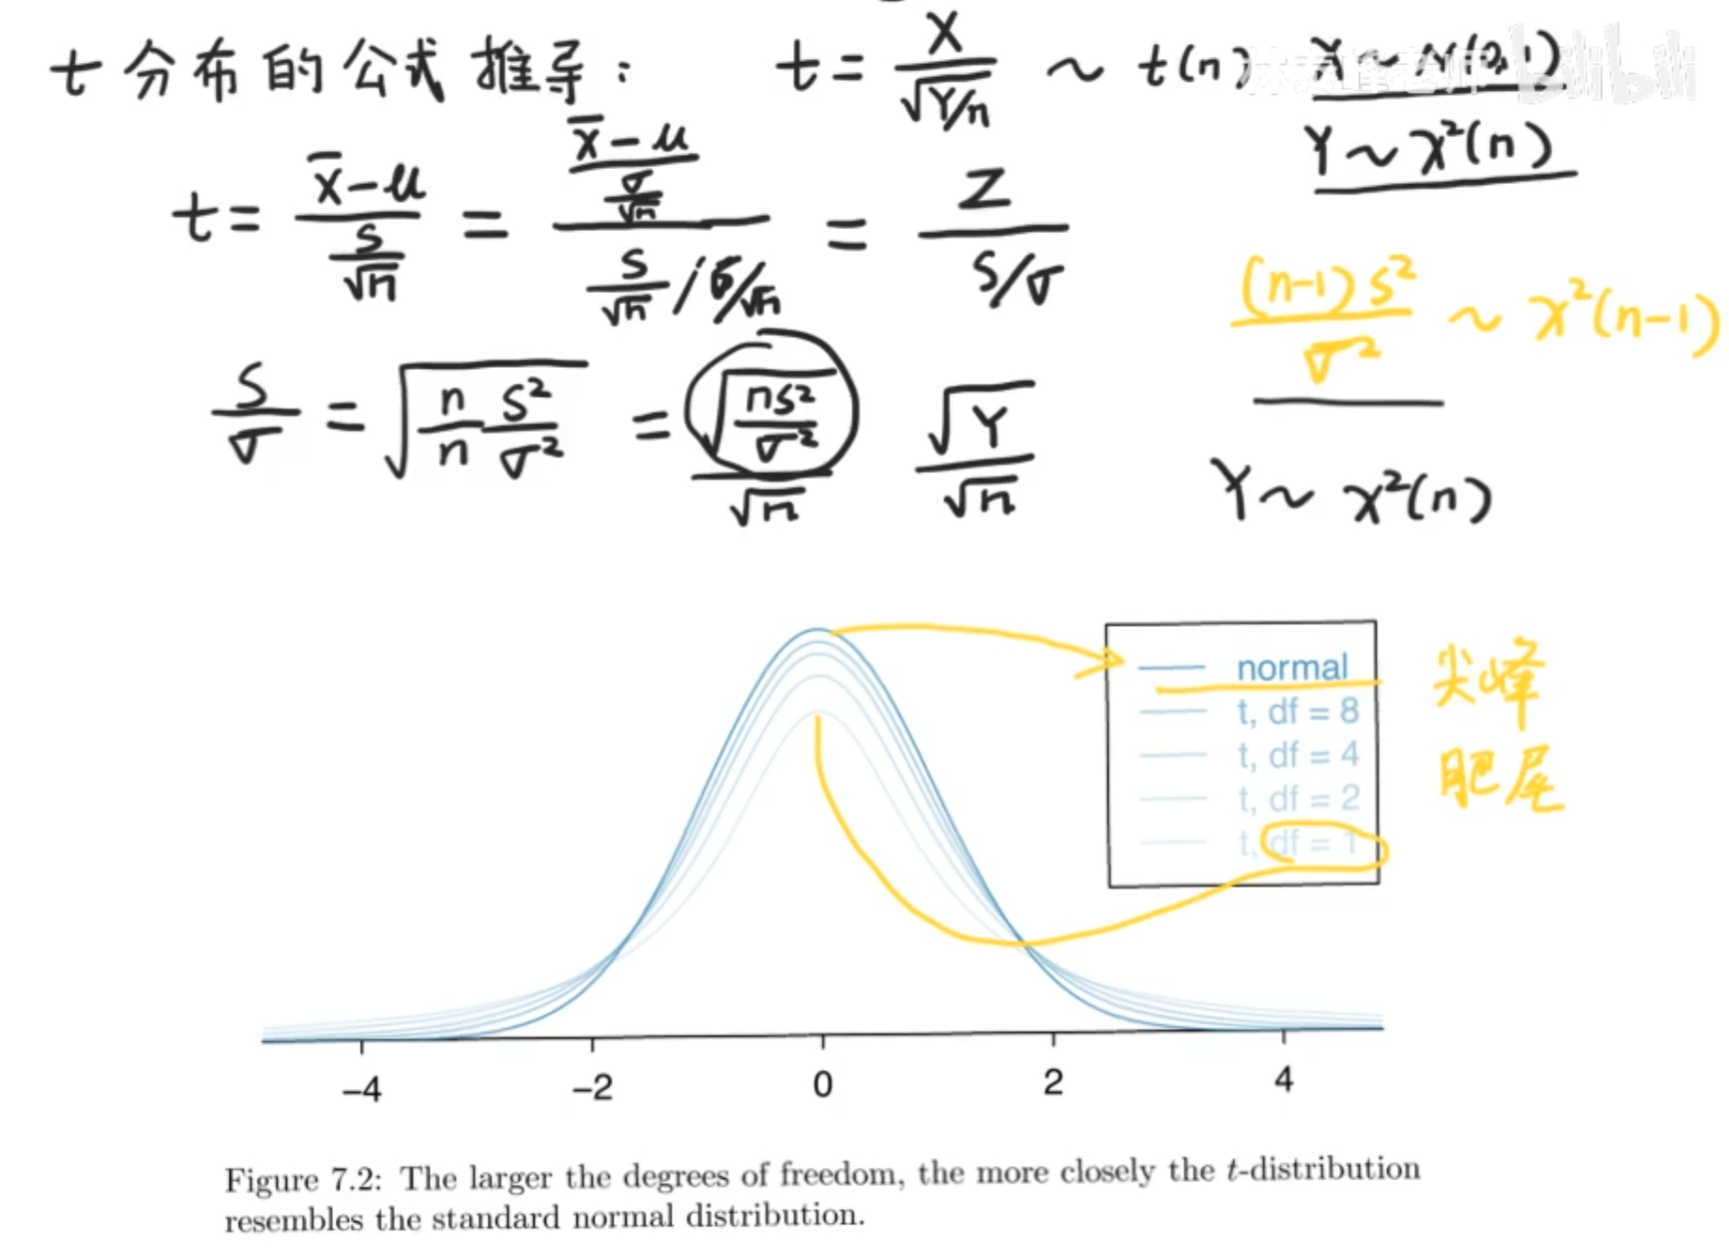 t 分布的公式推导： t = X / √(Y/n) ~ t(n) X ~ N(0,1)
Y ~ χ²(n)
t = (x̄ - μ) / (s/√n) = ((x̄ - μ) / (σ/√n)) / (s/√n / σ/√n) = Z / (S/σ)
(n-1)s² / σ² ~ χ²(n-1)
s/σ = √(n/n s²/σ²) = √(ns²/σ²) / √n √Y / √n
Y ~ χ²(n)
normal
t, df = 8
t, df = 4
t, df = 2
t, df = 1
尖峰
肥尾
−4 −2 0 2 4
Figure 7.2: The larger the degrees of freedom, the more closely the t-distribution
resembles the standard normal distribution.